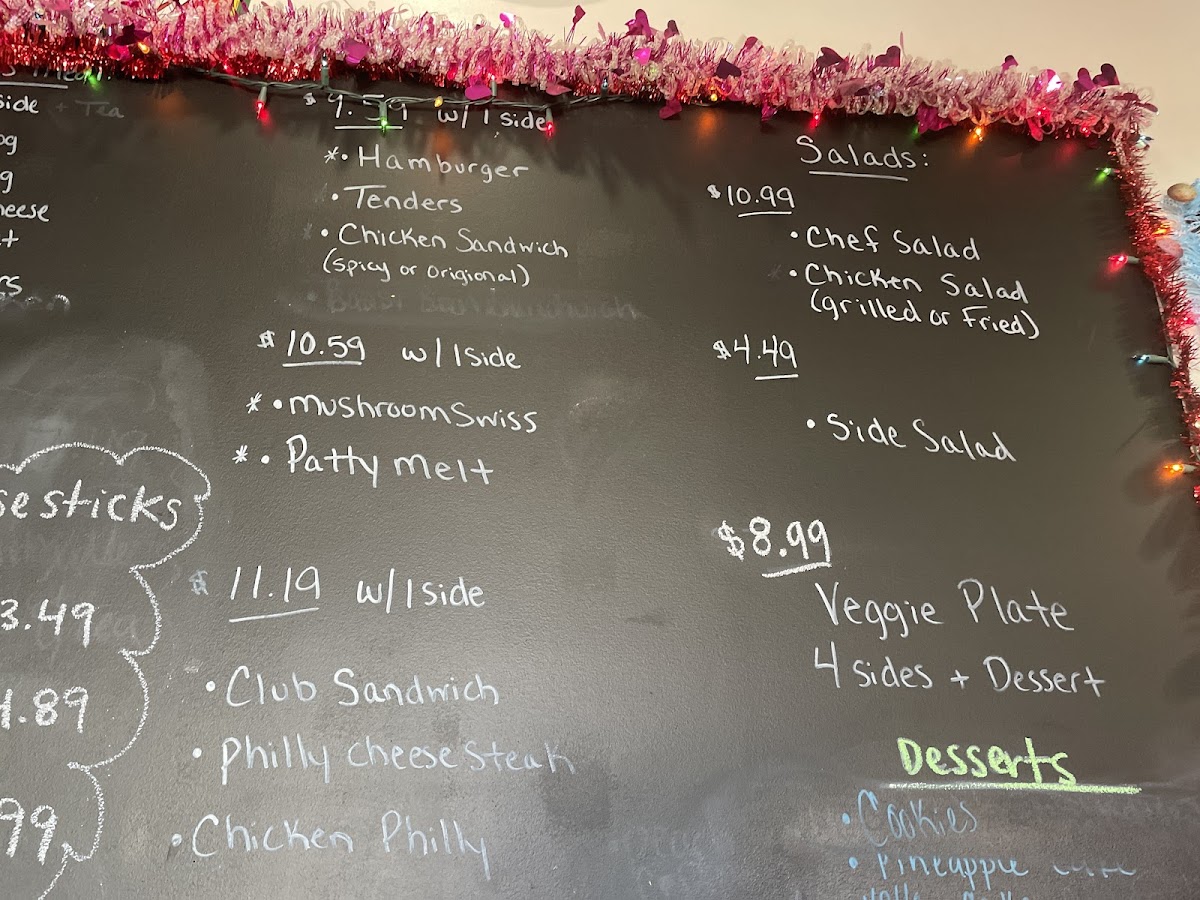 side + Tea
heese
sticks
3.49
.89
99
$9.59 w/1 side
*• Hamburger
• Tenders
• Chicken Sandwich
(Spicy or Origional)
$10.59 w/1 side
* • Mushroom Swiss
* • Patty Melt
$11.19 w/1 side
• Club Sandwich
• Philly cheese steak
• Chicken Philly
Salads:
$10.99
• Chef Salad
• Chicken Salad
(grilled or Fried)
$4.49
• Side Salad
$8.99
Veggie Plate
4 sides + Dessert
Desserts
• Cookies
• Pineapple